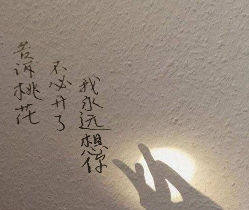 告诉桃花
不必开了
我永远想你